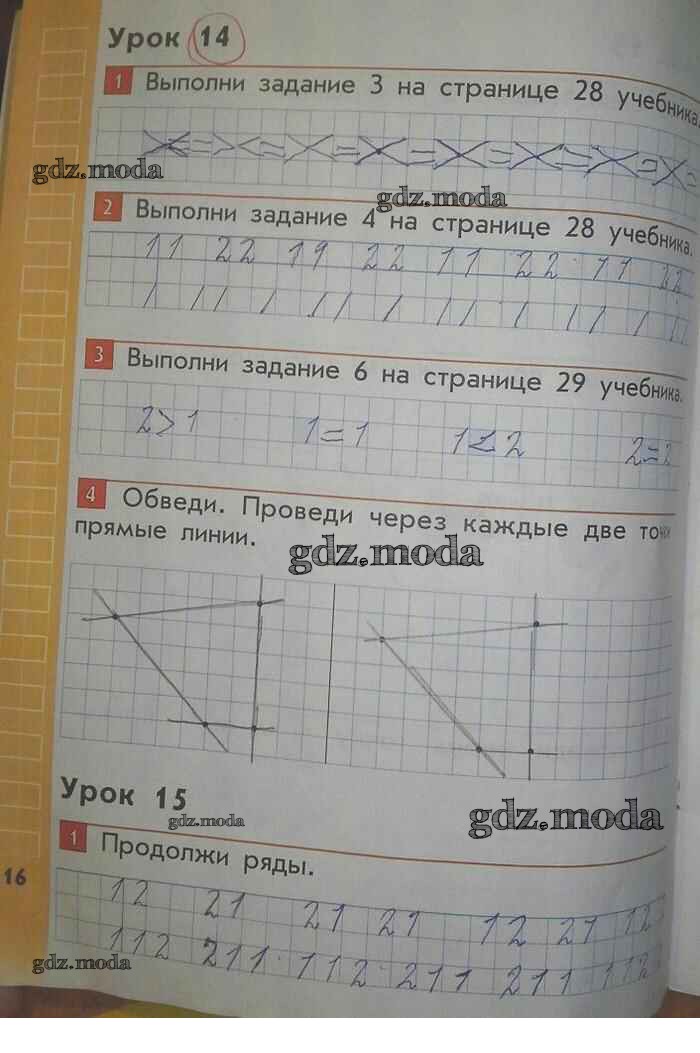 Урок 14
1 Выполни задание 3 на странице 28 учебника.
gdz.moda
gdz.moda
2 Выполни задание 4 на странице 28 учебника.
11 22 11 22 11 22 11 22
/ // / // / // / // / //
3 Выполни задание 6 на странице 29 учебника.
2>1 1=1 1<2 2=2
4 Обведи. Проведи через каждые две точки
прямые линии.
gdz.moda
Урок 15
gdz.moda
gdz.moda
1 Продолжи ряды.
16
12 21 21 21 12 21 12
112 211 112 211 211 112
gdz.moda